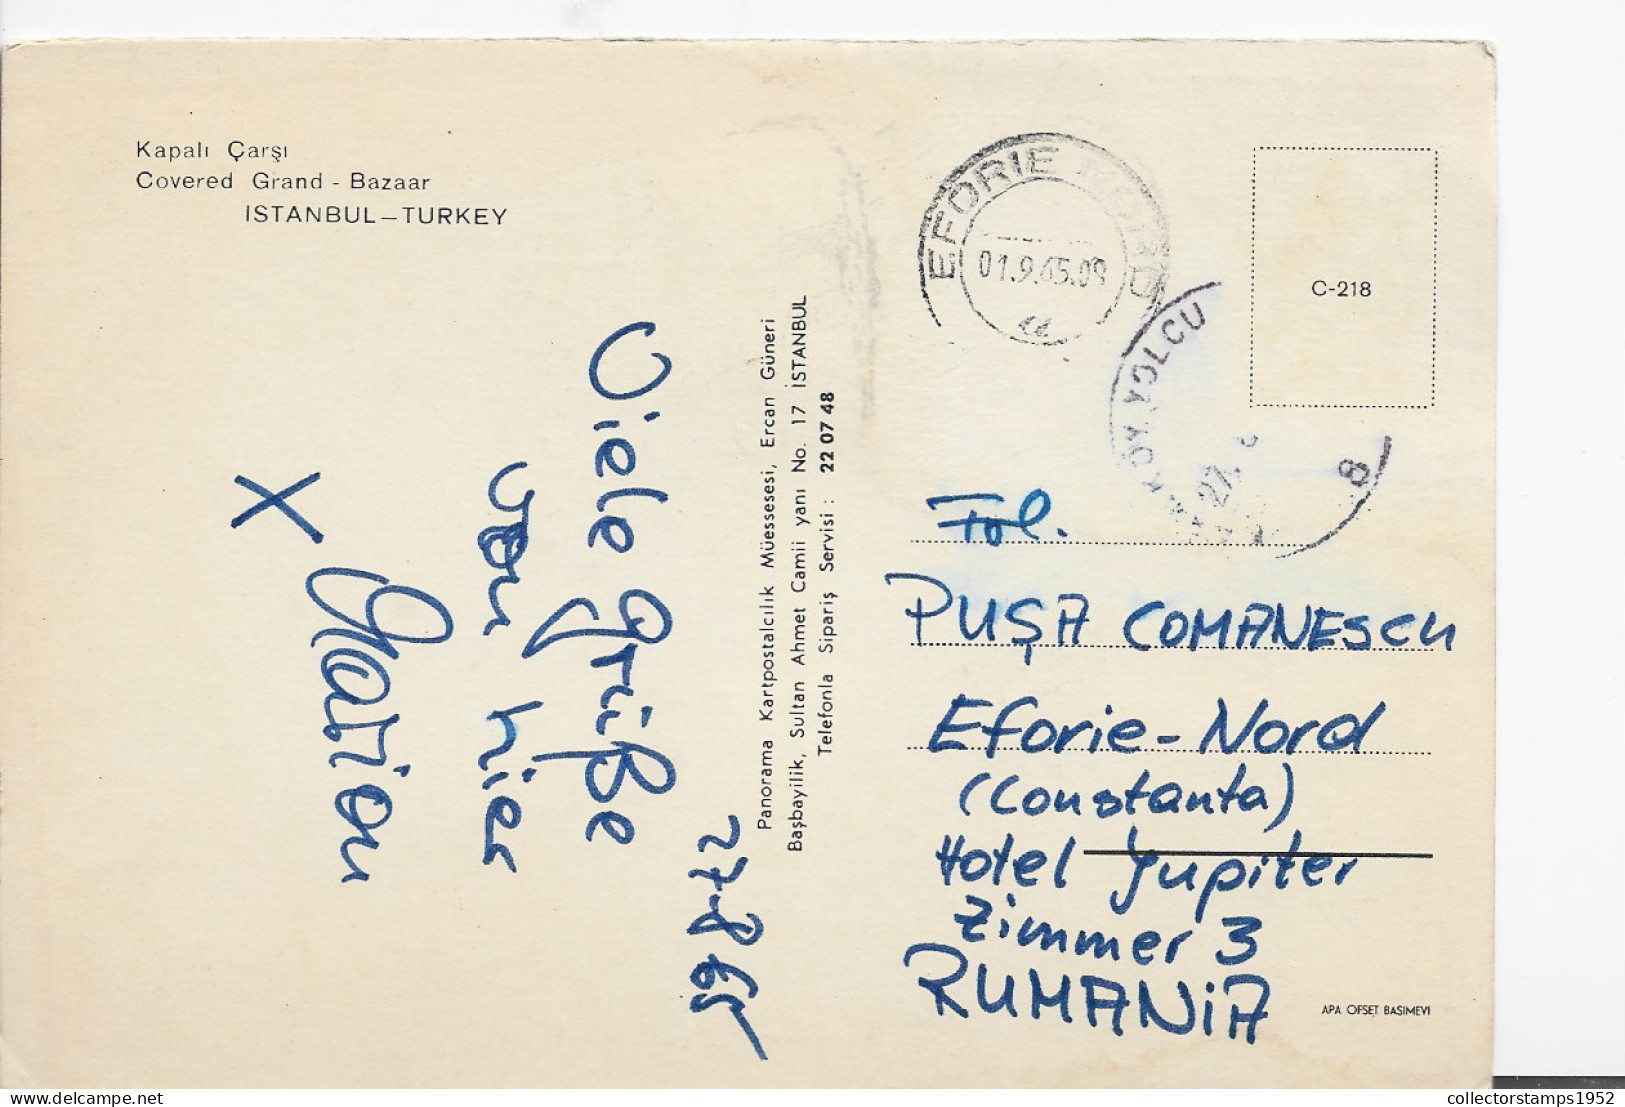 Kapalı Çarşı
Covered Grand - Bazaar
ISTANBUL – TURKEY
27.8.65
Viele Grüße
von hier
X Marion
Panorama Kartpostalcılık Müessesesi, Ercan Güneri
Başbayilik, Sultan Ahmet Camii yanı No. 17 İSTANBUL
Telefonla Sipariş Servisi : 22 07 48
EFORIE NORD
01.9.65.09
KÖY YOLCU
27.
8
C-218
PUŞA COMANESCU
Eforie-Nord
(Constanta)
Hotel Jupiter
Zimmer 3
RUMANiA
APA OFSET BASIMEVI
collectorstamps1952